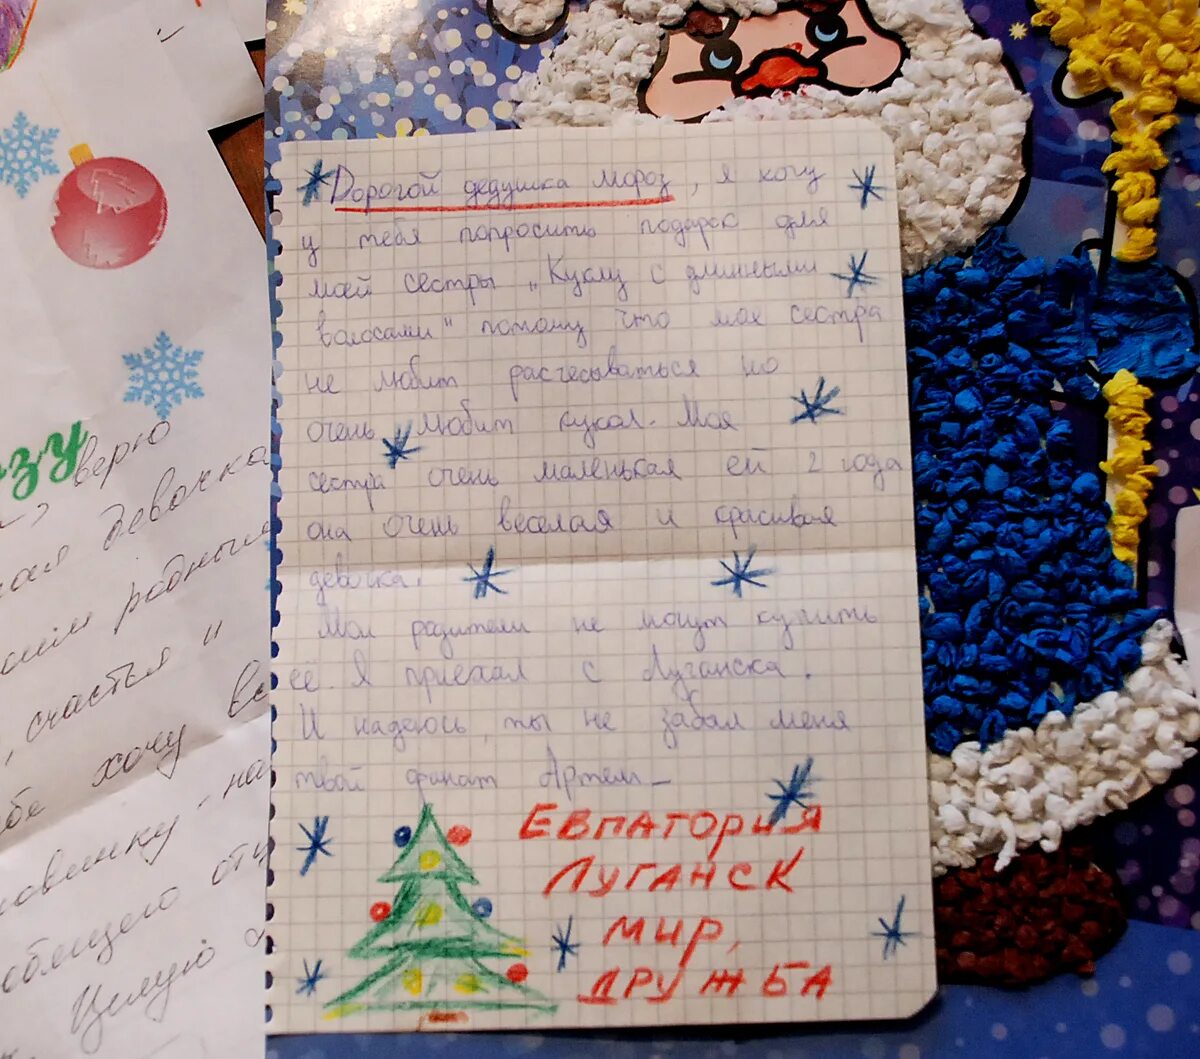 Дорогой дедушка мороз, я хочу
у тебя попросить подарок для
моей сестры „Куклу с длинными
волосами" потому что моя сестра
не любит расчесываться но
очень любит кукол. Моя
сестра очень маленькая ей 2 года
она очень веселая и красивая
девочка.
Мои родители не могут купить
её. Я приехал с Луганска.
И надеюсь, ты не забыл меня
твой фанат Артем
ЕВПАТОРИЯ
ЛУГАНСК
МИР,
ДРУЖБА
зу
верю
девочка
родными
, счастья "
хочу
Целую